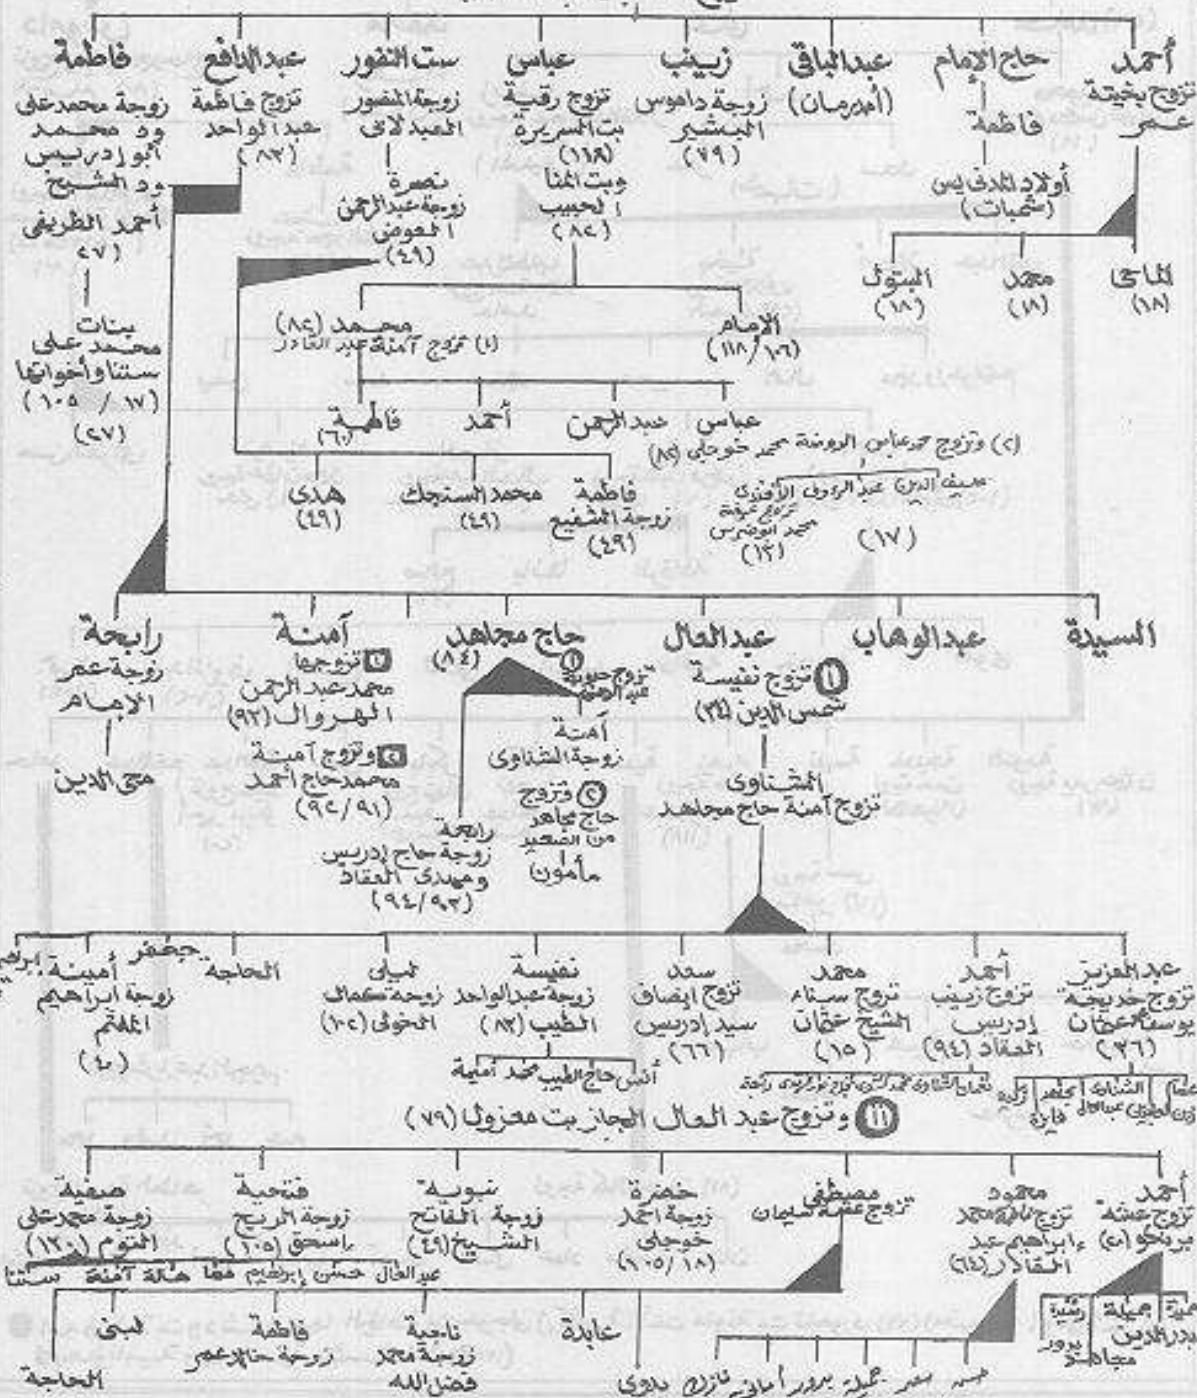 أحمد
تزوج بخيتة
عمر
حاج الإمام
فاطمة
أولاد المدني يس
(شمبات)
عبدالباقي
(أمدرمان)
زينب
زوجة داموس
البشير
(٧٩)
عباس
تزوج رقية
بت السريرة
(١١٨)
وبت المنا
الحبيب
(٨٢)
ست النفور
زوجة المنصور
العبدلابى
نصرة
زوجة عبدالرحمن
العوض
(٤٩)
عبدالدافع
تزوج فاطمة
عبدالواحد
(٨٣)
فاطمة
زوجة محمدعلى
ود محمد
أبو إدريس
ود الشيخ
أحمد الطريفى
(٢٧)
بنات
محمد على
ستنا وأخواتها
(١٧ / ١٠٥)
(٢٧)
الماحى
(١٨)
محمد
(١٨)
البتول
(١٨)
الإمام
(١٠٦ / ١١٨)
محمد (٨٢)
(١) تزوج آمنة عبدالقادر
عباس
عبدالرحمن
أحمد
فاطمة
(٦٠)
(٢) وتزوج محمدعباس الروضة محمد خوجلى (٨٢)
سيف الدين عبدالرءوف الأفندى
محمد أبوضرس
(١٣)
(١٧)
فاطمة
زوجة الشفيع
(٤٩)
محمد السنجك
(٤٩)
هدى
(٤٩)
السيدة
عبدالوهاب
عبدالعال
(١) تزوج نفيسة
شمس الدين (٣٤)
الشناوى
تزوج آمنة حاج مجاهد
حاج مجاهد
(٨٤)
(١)
آمنة
زوجة الشناوى
(٢) وتزوج
حاج مجاهد
من الصعيد
مأمون
رابحة
زوجة حاج إدريس
ومهدى العقاد
(٩٣/٩٤)
آمنة
(١) تزوجها
محمد عبدالرحمن
الهروال (٩٢)
(٢) وتزوج آمنة
محمد حاج أحمد
(٩١/٩٢)
رابحة
زوجة عمر
الإمام
محى الدين
عبدالعزيز
تزوج خديجة
يوسف عثمان
(٣٦)
أحمد
تزوج زينب
إدريس
العقاد (٩٤)
محمد
تزوج سناء
الشيخ عثمان
(١٥)
سعد
تزوج إنصاف
سيد إدريس
(٦٦)
نفيسة
زوجة عبدالواحد
الطيب (٨٣)
أنس حاج الطيب محمد أميمة
ليلى
زوجة كمال
الخولى (١٠٢)
الحاجة
جعفر
أمينة
زوجة ابراهيم
الملثم
(٤٠)
(١١) وتزوج عبدالعال الجاز بت معزول (٧٩)
أحمد
تزوج عشة
(٢٠)
محمود
ابراهيم عبد
القادر (٦٤)
مصطفى
تزوج عشة سليمان
خضرة
زوجة أحمد
خوجلى
(١٨ / ١٠٥)
نبوية
زوجة الفاتح
الشيخ (٤٩)
فتحية
زوجة الريح
إسحق (١٠٥)
صفية
زوجة محمدعلى
التوم (١٣٠)
عبدالعال حسن إبراهيم مها هالة آمنة ستنا
جميلة
رشيدة
بدرالدين
بدور
مجاهد
جميلة بدور أمانى نازك
بدوى
عابدة
ناجية
زوجة محمد
فضل الله
فاطمة
زوجة حامد عمر
لبنى
الحاجة